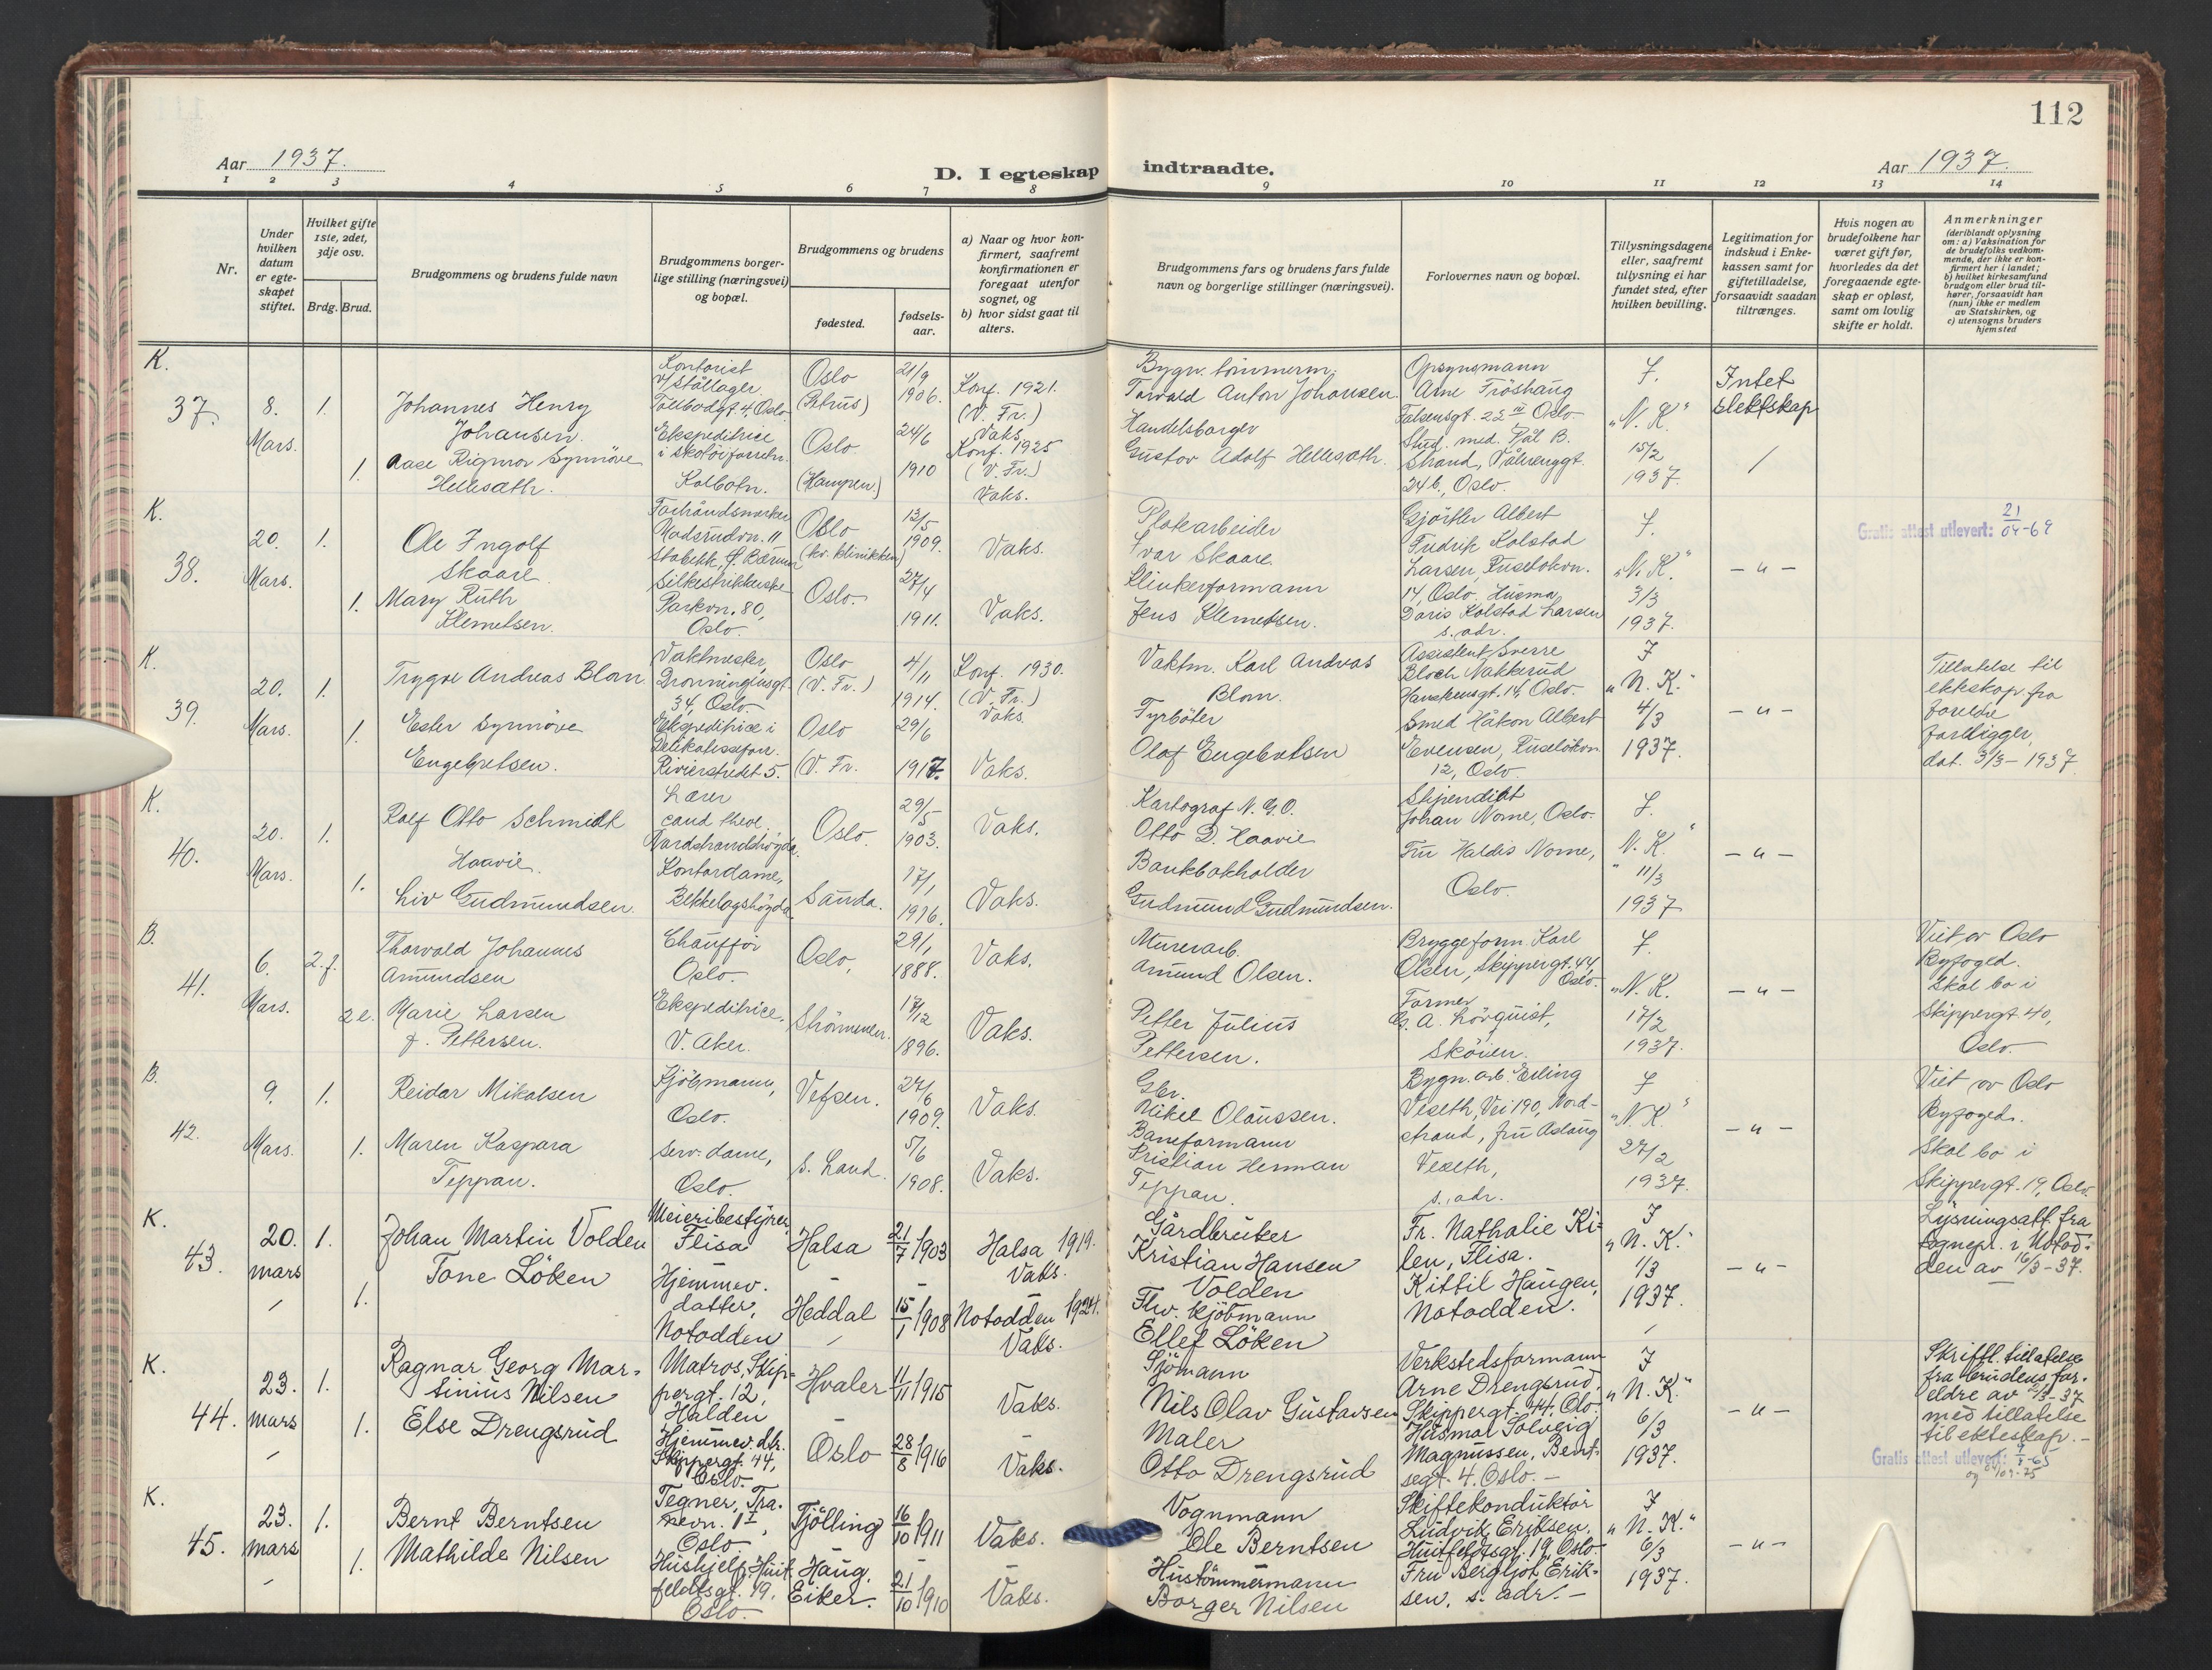 112
Aar 1937.
D. I egteskap indtraadte.
Aar 1937.
1 2 3 4 5 6 7 8 9 10 11 12 13 14
Nr.
Under hvilken datum er egteskapet stiftet.
Hvilket gifte 1ste, 2det, 3dje osv.
Brdg. Brud.
Brudgommens og brudens fulde navn
Brudgommens borgerlige stilling (næringsvei) og bopæl.
Brudgommens og brudens
fødested.
fødselsaar.
a) Naar og hvor konfirmert, saafremt konfirmationen er foregaat utenfor sognet, og
b) hvor sidst gaat til alters.
Brudgommens fars og brudens fars fulde navn og borgerlige stillinger (næringsvei).
Forlovernes navn og bopæl.
Tillysningsdagene eller, saafremt tillysning ei har fundet sted, efter hvilken bevilling.
Legitimation for indskud i Enkekassen samt for giftetilladelse, forsaavidt saadan tiltrænges.
Hvis nogen av brudefolkene har været gift før, hvorledes da det foregaaende egteskap er opløst, samt om lovlig skifte er holdt.
Anmerkninger (deriblandt oplysning om: a) Vaksination for de brudefolks vedkommende, der ikke er konfirmert her i landet; b) hvilket kirkesamfund brudgom eller brud tilhører, forsaavidt han (hun) ikke er medlem av Statskirken, og c) utensogns bruders hjemsted
K.
37. 8. Mars. 1.
Johannes Henry Johansen.
Kontorist v/ Stållager Tollbodgt. 4, Oslo.
Oslo (Petrus)
21/9 1906.
Konf. 1921. (V. Fr.) Vaks.
Bygn. tömmerm. Torvald Anton Johansen.
Opsynsmann Arne Fröshaug Falsensgt. 22 IV Oslo
7. "N. K." 15/2 1937.
Intet slektskap
1. Aase Rigmor Synnöve Hellesæth.
Ekspeditrice i skotöiforretn. Kolbotn.
Oslo (Hampen.)
24/6 1910
Konf. 1925 (V. Fr.) Vaks.
Handelsborger Gustav Adolf Hellesæth.
Stud. med. Pål B. Strand, Vålerenggt. 24 b., Oslo.
K.
38. 20. Mars. 1.
Ole Ingolf Skaare.
Madsrudvn. 11 Stabekk, V. Bærum
Oslo (kv. klinikken)
13/5 1909.
Vaks.
Platearbeider Ivar Skaare.
Gjörtler Albert Fredrik Kolstad Larsen, Ruselökvn. 14, Oslo.
7. "N. K." 3/3 1937.
— " —
Gratis attest utlevert: 21/04-69
1. Mary Ruth Klemetsen.
Silkestrikkerske Parkvn. 80, Oslo.
Oslo.
27/4 1911.
Vaks.
Klinkerformann Jens Klemetsen.
Husmor Doris Kolstad Larsen s. adr.
K.
39. 20. Mars. 1.
Trygve Andreas Blom
Vaktmester, Dronningensgt. 34, Oslo.
Oslo (V. Fr.)
4/11 1914.
Konf. 1930. (V. Fr.) Vaks.
Vaktm. Karl Andreas Blom.
Assistent Sverre Bloch Nakkerud Hauskensgt. 14, Oslo.
7 "N. K." 4/3 1937.
— " —
Tillatelse til ekteskap fra foreldre foreligger, dat. 3/3-1937
1. Ester Synnöve Engebretsen.
Ekspeditrice i Delikatesseforr. Rivierstredet 5.
Oslo (V. Fr.
29/6 1917.
Vaks.
Fyrböter Olaf Engebretsen
Smed Håkon Albert Evensen, Ruselökvn. 12, Oslo.
K.
40. 20. Mars. 1.
Rolf Otto Schmidt Haavie.
Lærer cand. theol. Nordstrandshögda.
Oslo.
29/5 1903.
Vaks.
Kartograf N. G. O. Otto D. Haavie
Stipendiat Johan Nome, Oslo.
7. "N. K." 11/3 1937
— " —
1. Liv Gudmundsen.
Kontordame, Bekkelagshögda
Sauda.
17/1 1916.
Vaks.
Bankbokholder Gudmund Gudmundsen.
Fru Haldis Nome, Oslo.
B.
41. 6. Mars. 2. f.
Thorvald Johannes Amundsen
Chaufför Oslo.
Oslo,
29/1 1888.
Vaks.
Murerarb. Amund Olsen.
Bryggeform. Karl Olsen, Skippergt. 44, Oslo.
7. "N. K. 17/2 1937.
— " —
Viet av Oslo Byfoged. Skal bo i Skippergt. 40, Oslo.
2 e. Marie Larsen f. Pettersen.
Ekspeditrice, V. Aker.
Strömmen.
17/12 1896.
Vaks.
Petter Julius Pettersen.
Former G. A. Lövquist, Sköien.
B.
42. 9. Mars. 1.
Reidar Mikalsen
Sjömann, Oslo.
Vefsen.
27/6 1909.
Vaks.
Gbr. Mikel Olaussen.
Bygn. arb. Erling Veseth, Vei 190, Nordstrand, fru Aslaug Veseth, s. adr.
7 "N. K." 27/2 1937.
— " —
Viet av Oslo Byfoged. Skal bo i Skippergt. 19, Oslo.
1. Maren Kaspara Teppan.
Serv. dame, Oslo.
S. Land.
5/6 1908.
Vaks.
Baneformann Kristian Herman Teppan.
K.
43. 20. mars 1.
Johan Martin Volden
Meieribestyrer, Flisa
Halsa
21/7 1903
Halsa 1919. Vaks.
Gårdbruker Kristian Hansen Volden
Fr. Nathalie Kilen, Flisa.
7 "N. K." 1/3 1937.
— " —
Lysningsatt. fra sognepr. i Notodden av 16/3-37.
1. Tone Löken
Hjemmev. datter, Notodden
Heddal
15/1 1908
Notodden 1924. Vaks.
Fhv. kjöbmann Ellef Löken
Kittil Haugen, Notodden.
K.
44. 23. mars 1.
Ragnar Georg Martinius Nilsen
Matros, Skippergt. 12, Halden
Hvaler
11/11 1915
Vaks.
Sjömann Nils Olav Gustavsen
Verkstedsformann Arne Drengsrud, Skippergt. 44. Oslo
7 "N. K." 6/3 1937.
— " —
Skriftl. tillatelse fra brudens foreldre av 2/3-37 med tillatelse til ekteskap. —
Gratis attest utlevert:
1. Else Drengsrud
Hjemmev. dtr. Skippergt. 44, Oslo.
Oslo
28/8 1916
Vaks.
Maler Otto Drengsrud
Husmor Solveig Magnussen, Bentsegt. 4. Oslo. —
K.
45. 23. mars 1.
Bernt Berntsen
Tegner, Oslo
Tjölling
16/10 1911
Vaks.
Vognmann Ole Berntsen
Skiftekonduktör Ludvik Eriksen. Huitfeldtsgt. 19, Oslo.
7 "N. K." 6/3 1937.
— " —
1. Mathilde Nilsen
Hushjelp, Huitfeldtsgt. 19, Oslo.
Haug. Eiker.
21/10 1910
Vaks.
Hustömmermann Borger Nilsen
Fru Bergljot Eriksen, s. adr. —